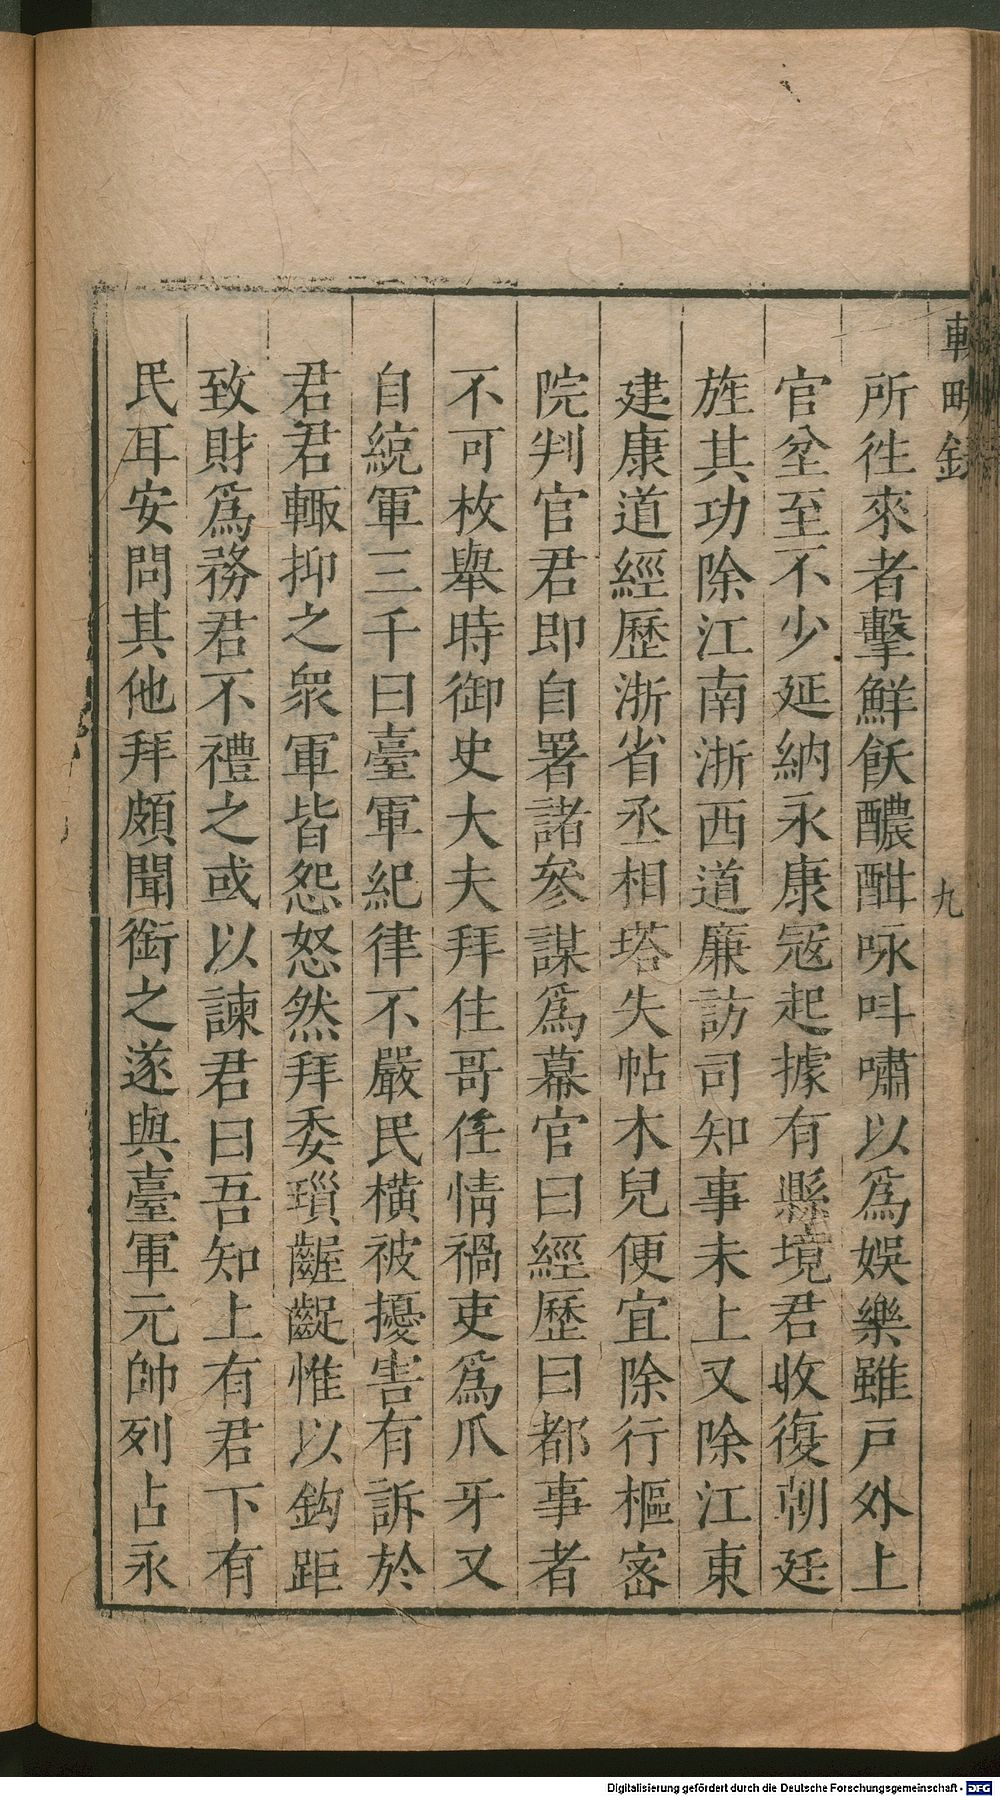 輟畊錄 九
所徃來者擊鮮飫醲酣咏呌嘯以爲娛樂雖戸外上
官坌至不少延納永康宼起據有縣境君收復朝廷
旌其功除江南浙西道廉訪司知事未上又除江東
建康道經歷浙省丞相塔失帖木兒便宜除行樞宻
院判官君即自署諸參謀爲幕官曰經歷曰都事者
不可枚舉時御史大夫拜住哥任情禍吏爲爪牙又
自統軍三千曰臺軍紀律不嚴民横被擾害有訴於
君君輙抑之衆軍皆怨怒然拜委瑣齷齪惟以鈎距
致財爲務君不禮之或以諫君曰吾知上有君下有
民耳安問其他拜頗聞銜之遂與臺軍元帥列占永
Digitalisierung gefördert durch die Deutsche Forschungsgemeinschaft - DFG